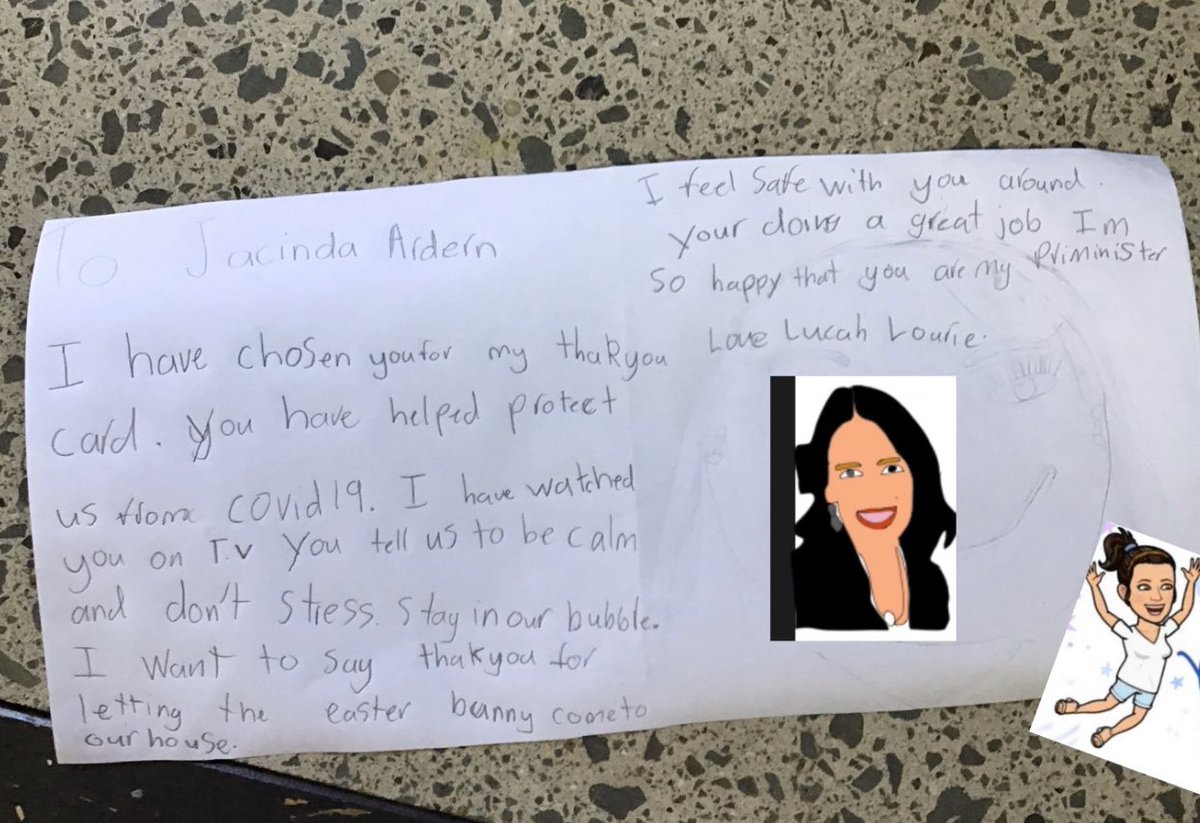 To Jacinda Ardern
I have chosen you for my thakyou
card. You have helped protect
us from covid19. I have watched
you on T.V You tell us to be calm
and don't stress. Stay in our bubble.
I want to say thakyou for
letting the easter bunny come to
our house.
I feel safe with you around.
your doing a great job Im
So happy that you are my Priminister
Love Lucah Lourie.